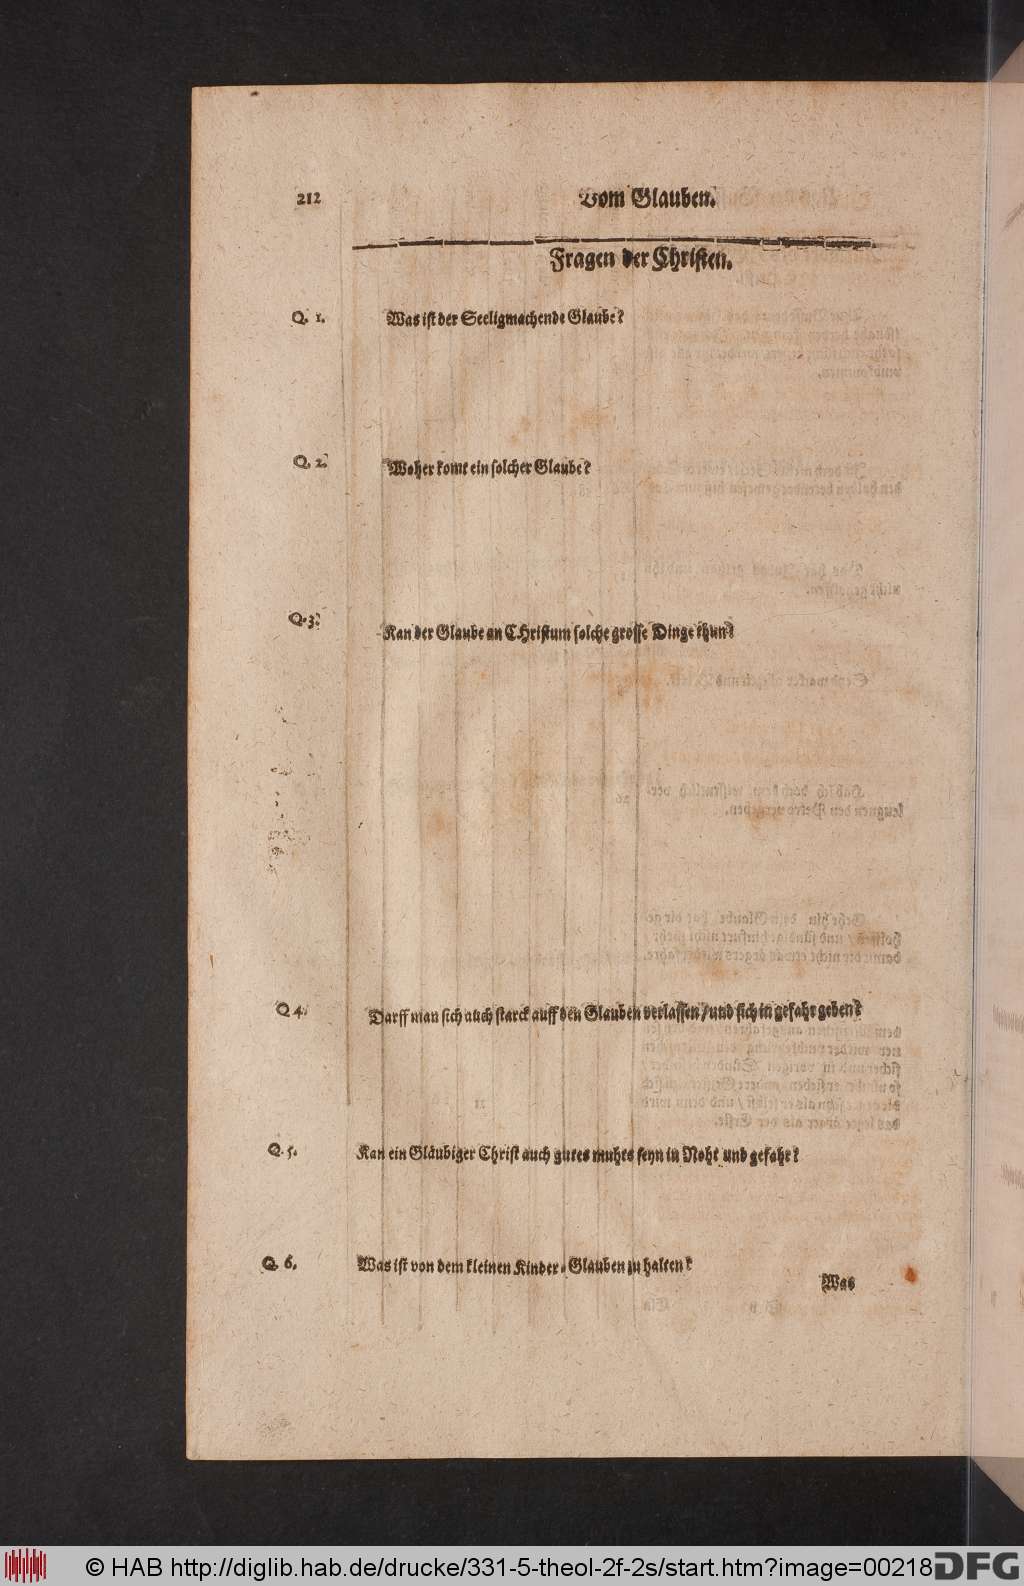 212
Vom Glauben.
Fragen der Christen.
Q. 1. Was ist der Seeligmachende Glaube?
Q. 2. Woher komt ein solcher Glaube?
Q. 3. Kan der Glaube an CHristum solche grosse Dinge thun?
Q 4. Darff man sich auch starck auff den Glauben verlassen / und sich in gefahr geben?
Q. 5. Kan ein Gläubiger Christ auch gutes muhts seyn in Noht und gefahr?
Q. 6. Was ist von dem kleinen Kinder-Glauben zu halten?
Was
© HAB http://diglib.hab.de/drucke/331-5-theol-2f-2s/start.htm?image=00218
DFG